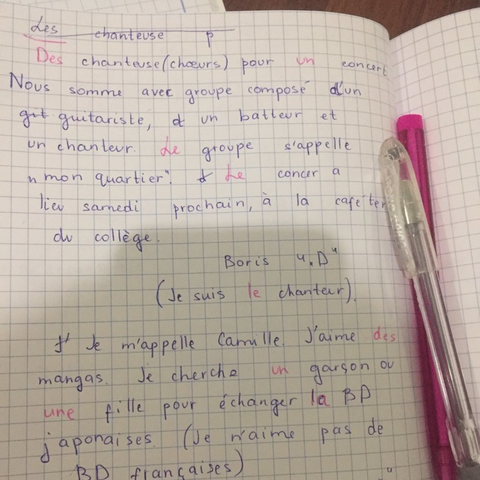 des chanteuse p
Des chanteuse (chœurs) pour un concert
Nous somme avec groupe composé d'un
guitariste, d un batteur et
un chanteur. Le groupe s'appelle
"mon quartier". Le concer a
lieu samedi prochain, à la cafeter
du collège.
Boris "4.D"
(Je suis le chanteur).
Je m'appelle Camille. J'aime des
mangas. Je cherche un garson ou
une fille pour échanger la BD
japonaises. (Je n'aime pas de
BD françaises)